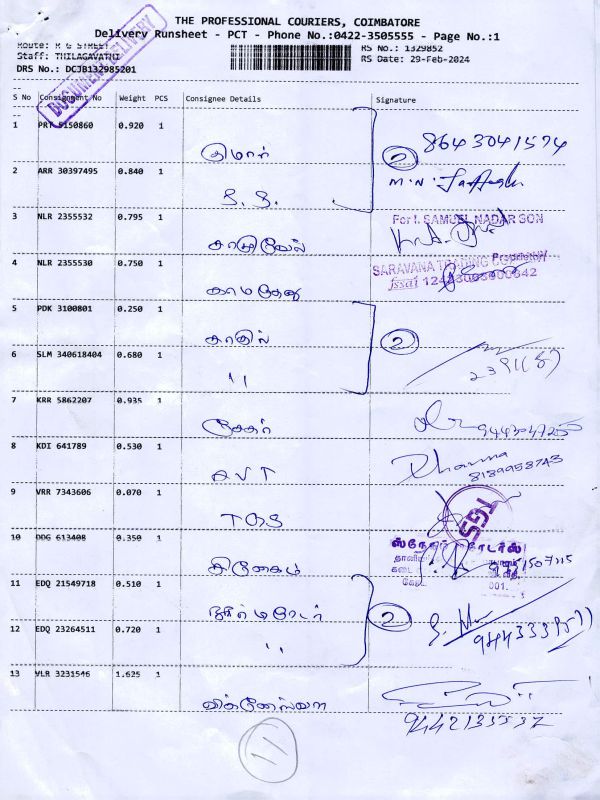 THE PROFESSIONAL COURIERS, COIMBATORE
Delivery Runsheet - PCT - Phone No.:0422-3505555 - Page No.:1
Route: R G STREET RS No.: 1329852
Staff: THILAGAVATHI RS Date: 29-Feb-2024
DRS No.: DCJB132985201
DOCUMENT DELIVERY
S No Consignment No Weight PCS Consignee Details Signature
1 PRT 5150860 0.920 1
குமார் 2 8643041574
2 ARR 30397495 0.840 1
S. S. M.N.
3 NLR 2355532 0.795 1
For I. SAMUEL NADAR SON
Proprietor
4 NLR 2355530 0.750 1
SARAVANA TRADING COMPANY
fssai
காமதேனு
5 PDK 3100801 0.250 1
2
6 SLM 340618404 0.680 1
" 2391(8)
7 KRR 5862207 0.935 1
சேகர்
8 KDI 641789 0.530 1
AVT Dharma
8189958743
9 VRR 7343606 0.070 1
TGS
KGS
10 DDG 613408 0.350 1
ஸ்நேகா டிரேடர்ஸ்
11 EDQ 21549718 0.510 1
2
12 EDQ 23264511 0.720 1
"
13 VLR 3231546 1.625 1
விக்னேஸ்வரா
9442135532
11